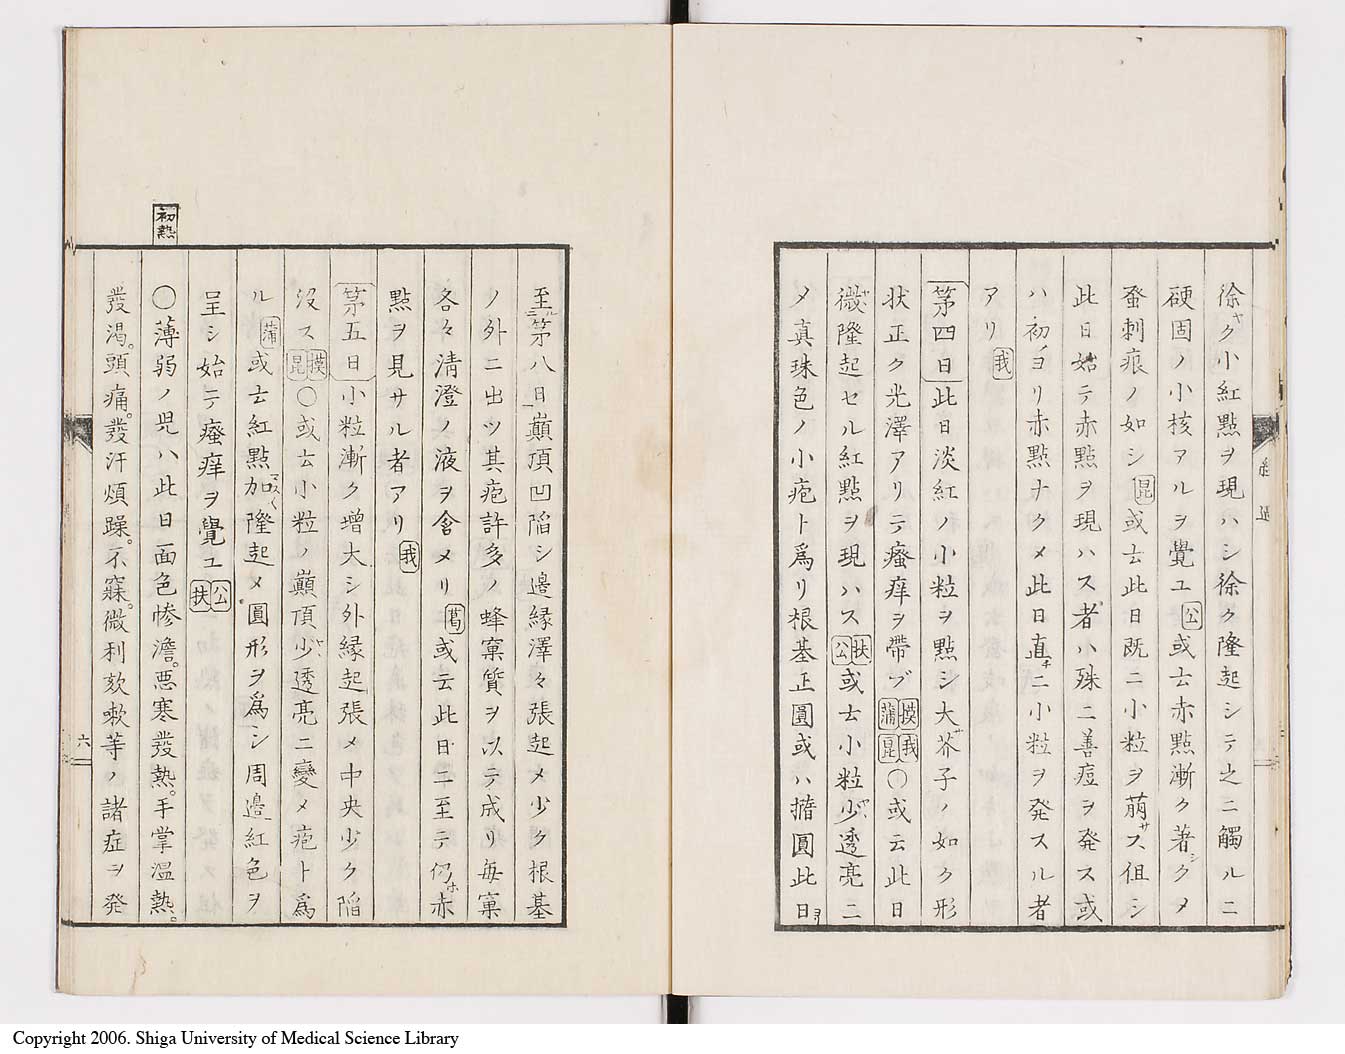 徐ヤク小紅點ヲ現ハシ徐ク隆起シテ之ニ觸ルニ
硬固ノ小核アルヲ覺ユ公或云赤點漸ク著シクメ
蚤刺痕ノ如シ昆或云此日既ニ小粒ヲ萠サス但シ
此日始テ赤點ヲ現ハス者ハ殊ニ善痘ヲ発ス或
ハ初メヨリ赤點ナクメ此日直チニ小粒ヲ発スル者
アリ我
第四日此日淡紅ノ小粒ヲ點シ大サ芥子ノ如ク形
状正ク光澤アリテ瘙痒ヲ帶ブ模我蒲昆〇或云此日
微隆起セル紅點ヲ現ハス扶公或云小粒少透亮ニ
メ真珠色ノ小疱ト爲リ根基正圓或ハ撱圓此日ヨリ
至ルニ第八日顚頂凹陷シ邉縁澤々張起メ少ク根基
ノ外ニ出ツ其疱許多ノ蜂窠質ヲ以テ成リ毎窠
各々清澄ノ液ヲ含メリ葛或云此日ニ至テ仍ホ赤
點ヲ見サル者アリ我
第五日小粒漸ク増大シ外縁起張メ中央少ク陷
沒ス模昆〇或云小粒ノ巓頂少透亮ニ變メ疱ト爲
ル蒲或云紅點加マス〱隆起メ圓形ヲ爲シ周邉紅色ヲ
呈シ始テ瘙痒ヲ覺ユ公扶
初熱
〇薄弱ノ児ハ此日面色惨澹。悪寒發熱。手掌温熱。
發渇。頭痛。發汗煩躁。不寐。微利欬嗽等ノ諸症ヲ発
六
Copyright 2006. Shiga University of Medical Science Library